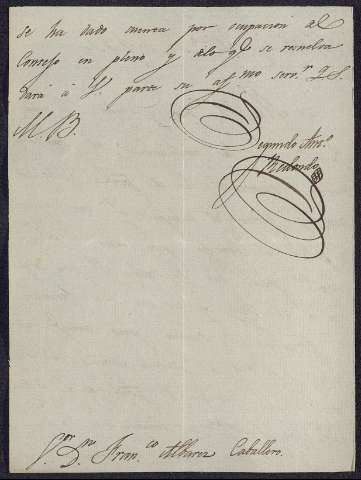 se ha dado cuenta por ocupacion del
Consejo en pleno y de lo q.e se resolva
dará á V. parte su af.mo serv.r Q. S.
M. B.
Segundo Ant.o
Redondo
S.or D.n Fran.co Albarez Caballero.